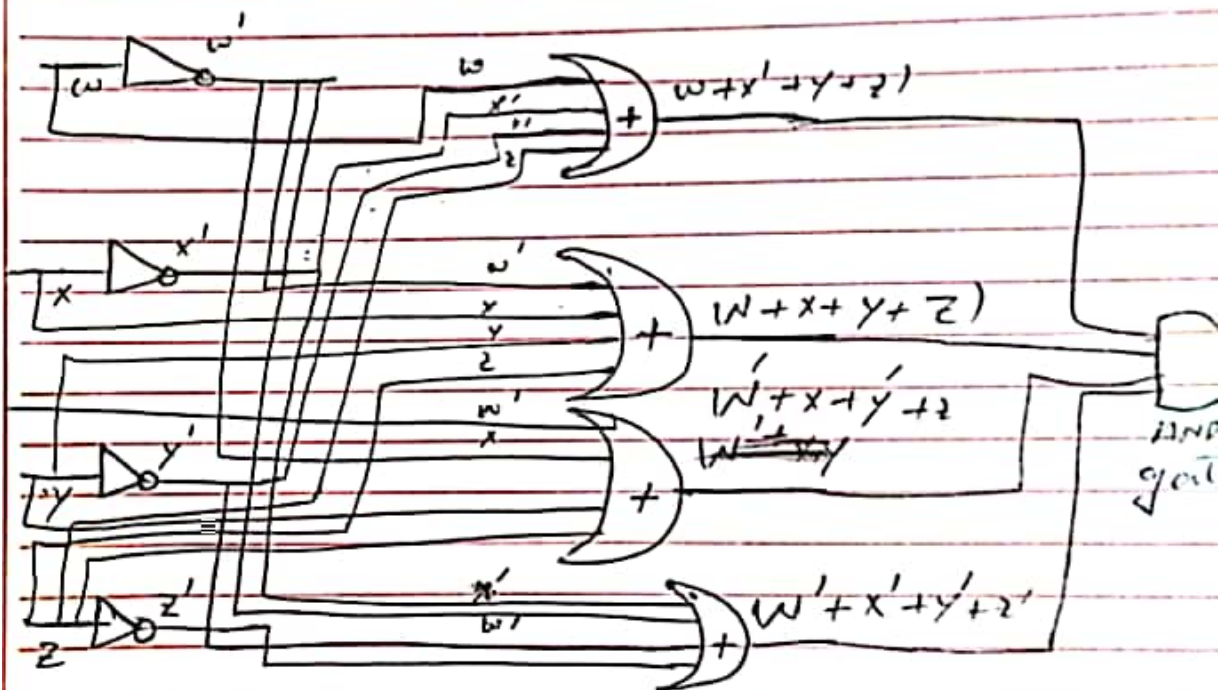 w'
w
w
x'
z
w+x'+y+z)
x'
x
w'
x
y
z
W+x+y+z)
w'
x
W'+x+y'+z
y'
y
AND
gat
z'
z
x'
w'
W'+x'+y'+z'